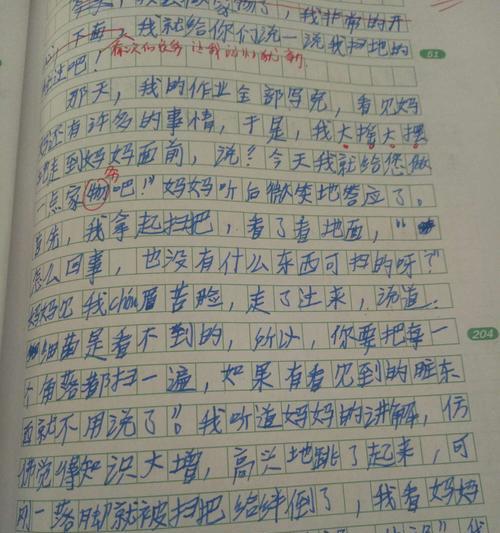 家物了，我非常的开
心，下面，我就给你们说一说我扫地的
过吧！
51
那天，我的作业全部写完，看见妈
妈还有许多的事情，于是，我大摇大摆
地走到妈妈面前，说？今天我就给您做
一点家物吧！”妈妈听后微笑地答应了。
务
首先，我拿起扫把，看了看地面，“
怎么回事，也没有什么东西可扫的呀？”
妈妈见我chóu眉苦脸，走了过来，说道：
204
细菌是看不到的，所以，你要把每一
个角落都扫一遍，如果有看见到的脏东
西就不用说了”。我听道妈妈的讲解，仿
佛觉得知识大增，高兴地跳了起来，可
刚一落脚就被扫把给绊倒了，我看妈妈